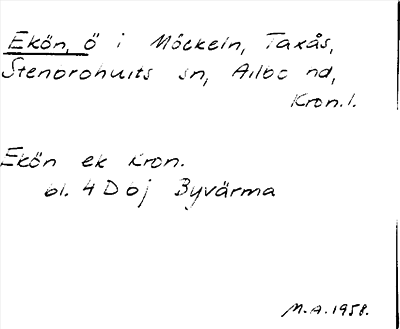 Ekön, ö i Möckeln, Taxås,
Stenbrohults sn, Allbo hd,
Kron.l.
Ekön ek Kron.
bl. 4 D 6j Byvärma
M.A. 1958.